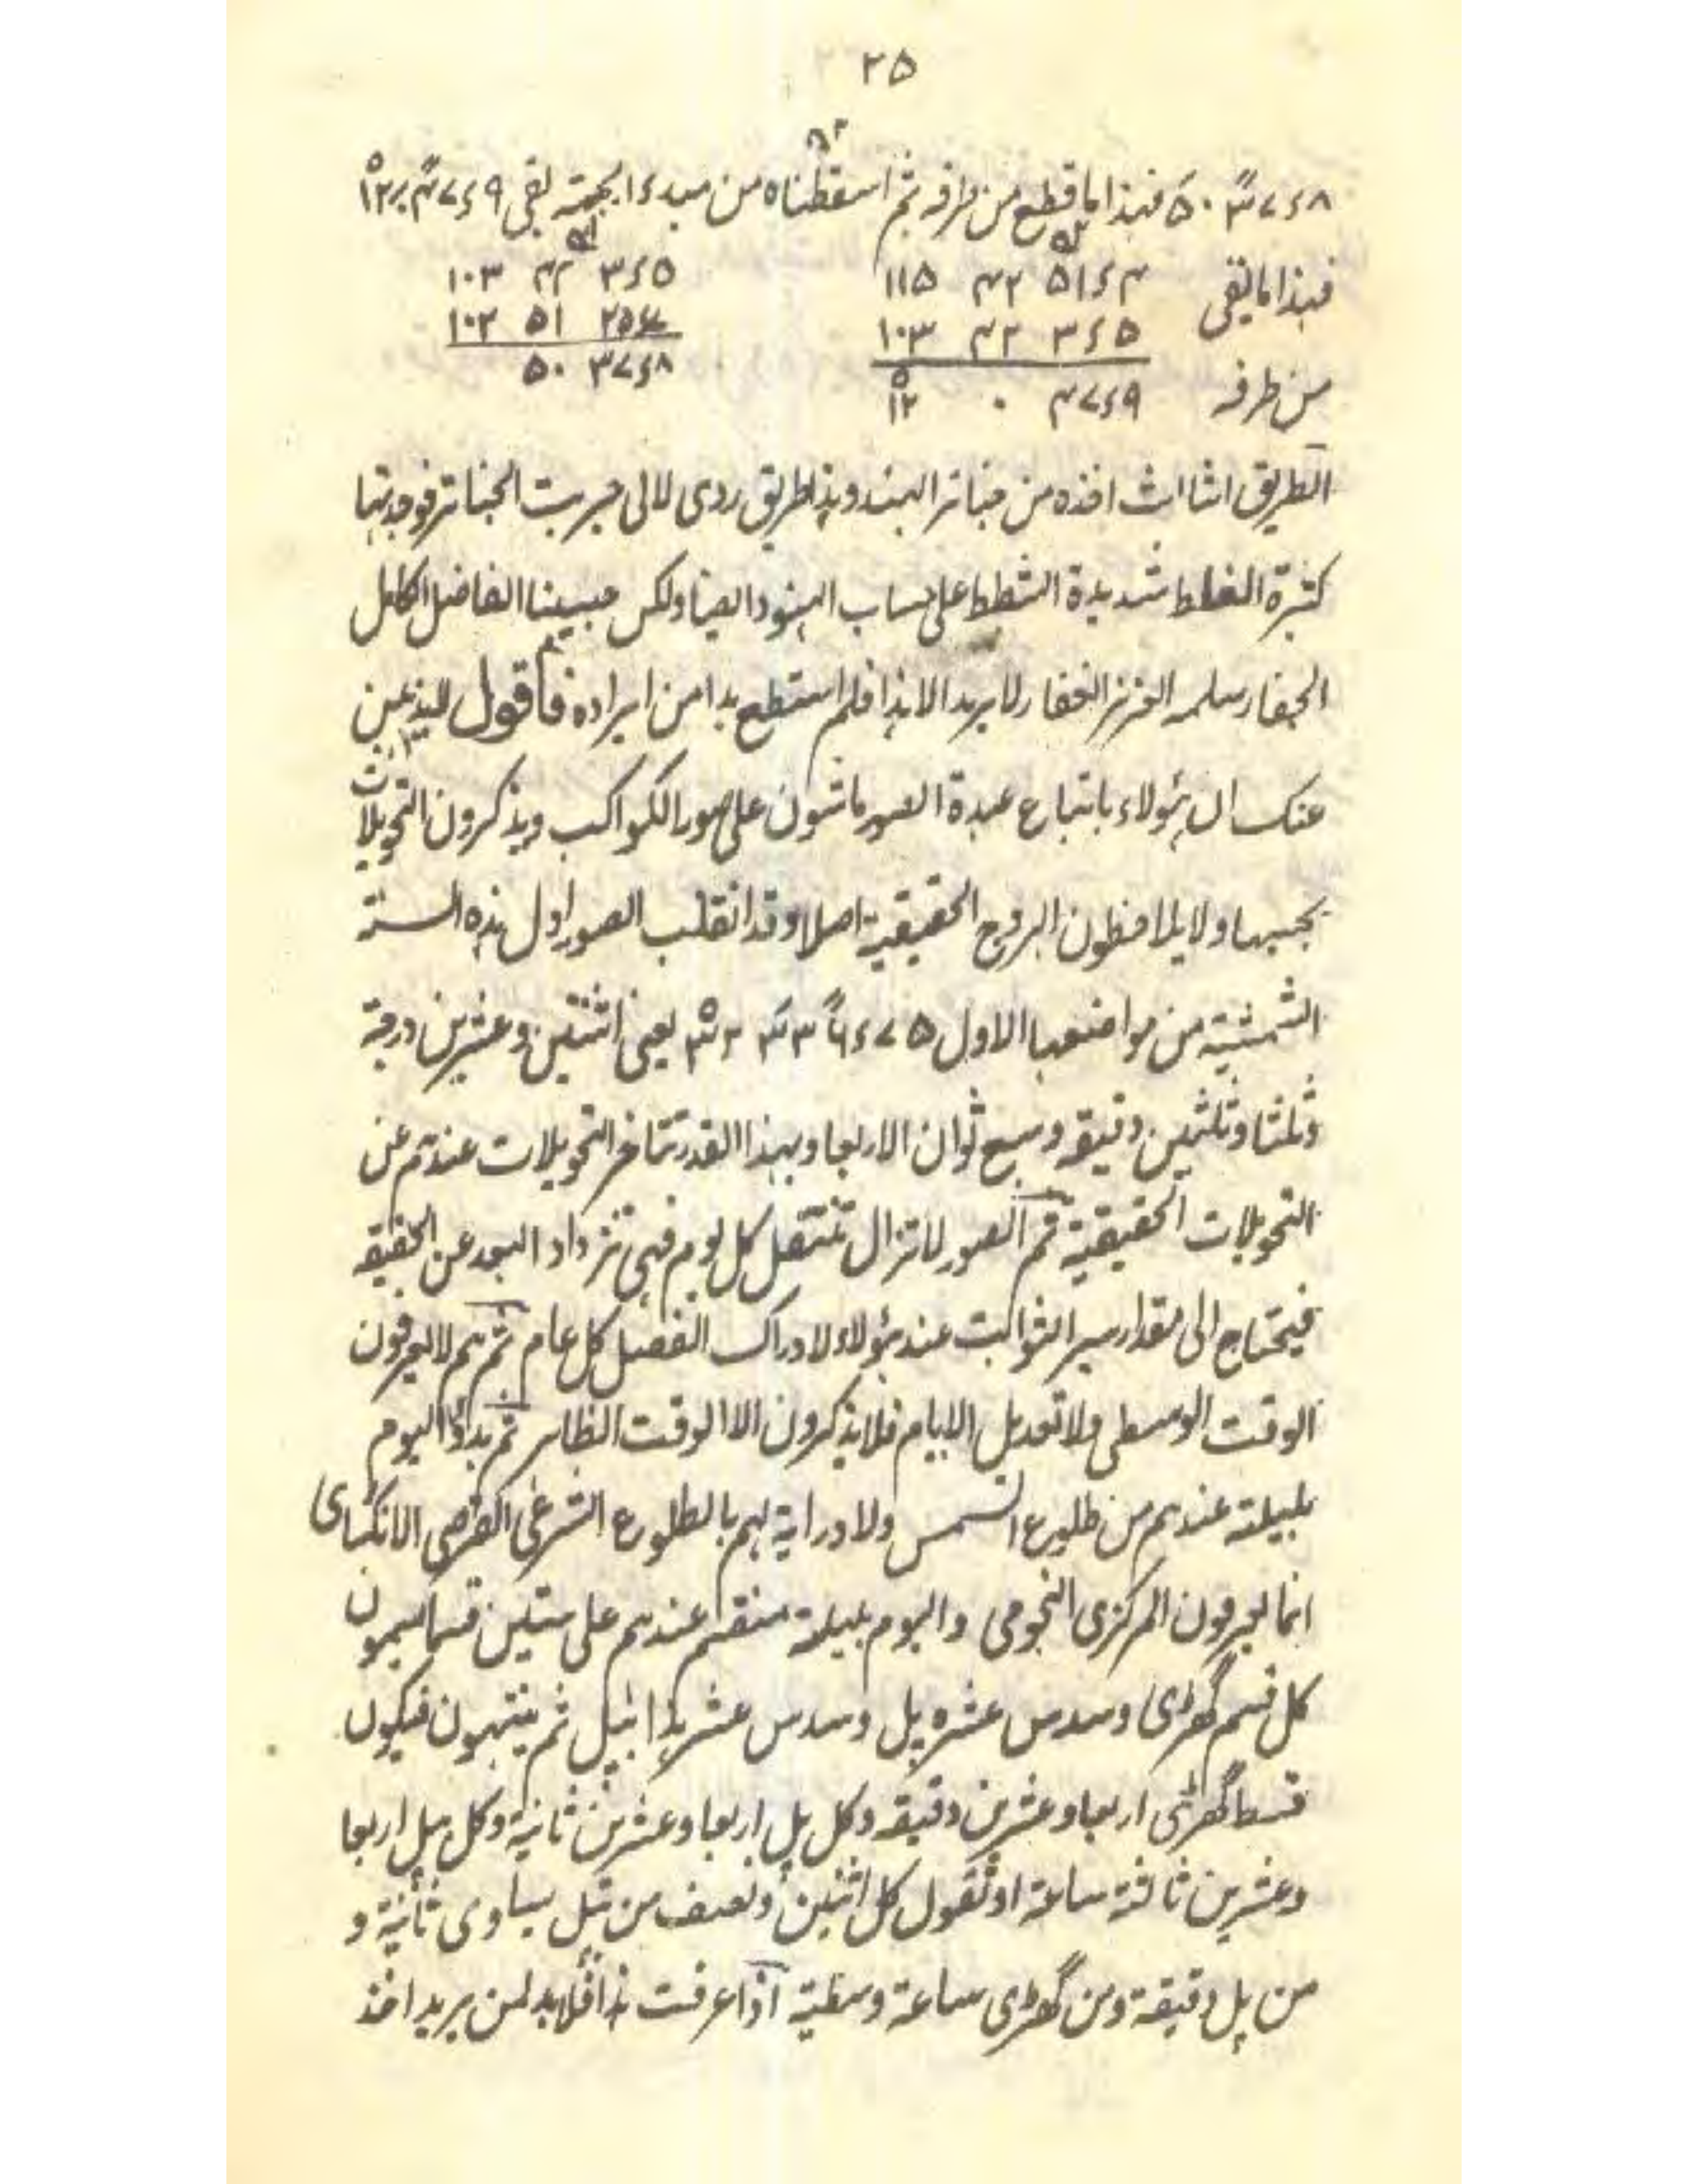 ٢٥
فهذا ما قطع من طرفه ثم اسقطناه من مبدء الجهة بقى
فهذا ما بقى ١١٥ ٤٢ ٥١ء٤ ١٠٣ ٤٢ ٣ء٥
١٠٣ ٤٢ ٣ء٥ ١٠٢ ٥١
من طرفه ١٢ ٠ ٤٧ء٩ ٥٠ ٣٧ء٨
الطريق الثالث اخذه من جناتر الهند وهذا طريق ردى لانى جربت الجناتر فوجدتها
كثيرة الغلط شديدة الشطط على حساب الهنود ايضا ولكن حبيبنا الفاضل الكامل
الجفار سلمه العزيز الغفار لا يريد الا هذا فلم استطع بدا من ايراده فاقول
عنك ان هؤلاء باتباع عبدة الصور ماشون على صور الكواكب ويذكرون التحويلات
بحسبها ولا يلاحظون البروج الحقيقية اصلا وقد انقلب الصور اول هذه السنة
الشمسية من مواضعها الاول يعنى اثنتين وعشرين درجة
وثلثا وثلثين دقيقه وسبع ثوان الاربعا وبهذا القدر تتاخر التحويلات عندهم عن
التحويلات الحقيقية ثم الصور لا تزال تنتقل كل يوم فهى تزداد البعد عن الحقيقه
فيحتاج الى مقدار سير الثوابت عند هؤلاء لادراك الفصل كل عام ثم هم لا يعرفون
الوقت الوسطى ولا تعديل الايام فلا يذكرون الا الوقت الظاهر ثم بدؤ اليوم
بليلته عندهم من طلوع الشمس ولا دراية لهم بالطلوع الشرعى القرصى الانكسارى
انما يعرفون المركزى النجومى واليوم بليلته منقسم عندهم على ستين قسما يسمون
كل قسم گھڑى وسدس عشره پل وسدس عشر هذا بپل ثم ينتهون فيكون
قسط گھڑى اربعا وعشرين دقيقه وكل پل اربعا وعشرين ثانية وكل بپل اربعا
وعشرين ثالثه ساعة او تقول كل اثنين ونصف من بپل يساوى ثانية و
من پل دقيقة ومن گھڑى ساعة وسطية اذا عرفت هذا فلا بد لمن يريد اخذ